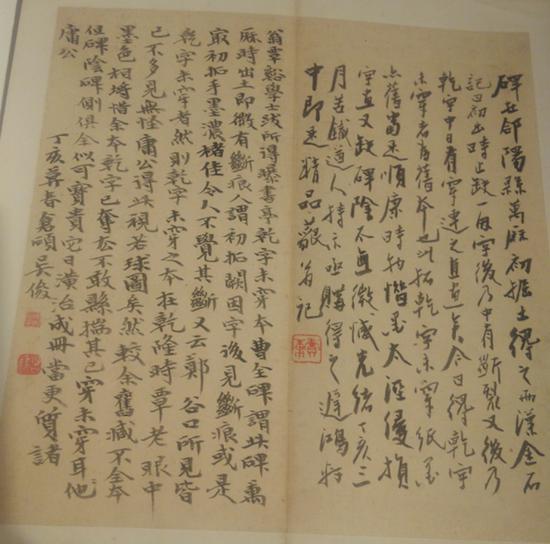 碑在郃陽縣萬曆初掘土得之兩漢金石
記曰初出時止缺一因字後乃中有斷裂又後乃
乾字中日有穿連之直道矣今日得乾字
未穿者為舊本也此拓乾字未穿紙墨
尚舊當是順康時物惜墨太溼損
字直又缺碑陰不無微憾光緒丁亥三
月苦鐵道人持示亟購得之
中即是精品 翁記
翁覃谿學士跋所得曝書亭乾字未穿本曹全碑謂此碑萬
厤時出土即微有斷痕人謂初拓闕因字後見斷痕或是
最初拓手墨濃楮佳令人不覺其斷又云鄭谷口所見皆
乾字未穿者然則乾字未穿之本在乾隆時覃老眼中
已不多見無怪庸公得此視若球圖矣然較余舊臧不全本
墨色相埒惜余本乾字已奪去不敢縣揣其已穿未穿耳他
但碑陰碑側俱全似可寶貴它日潢治成冊當更質諸
庸公
丁亥莫春倉碩吳俊